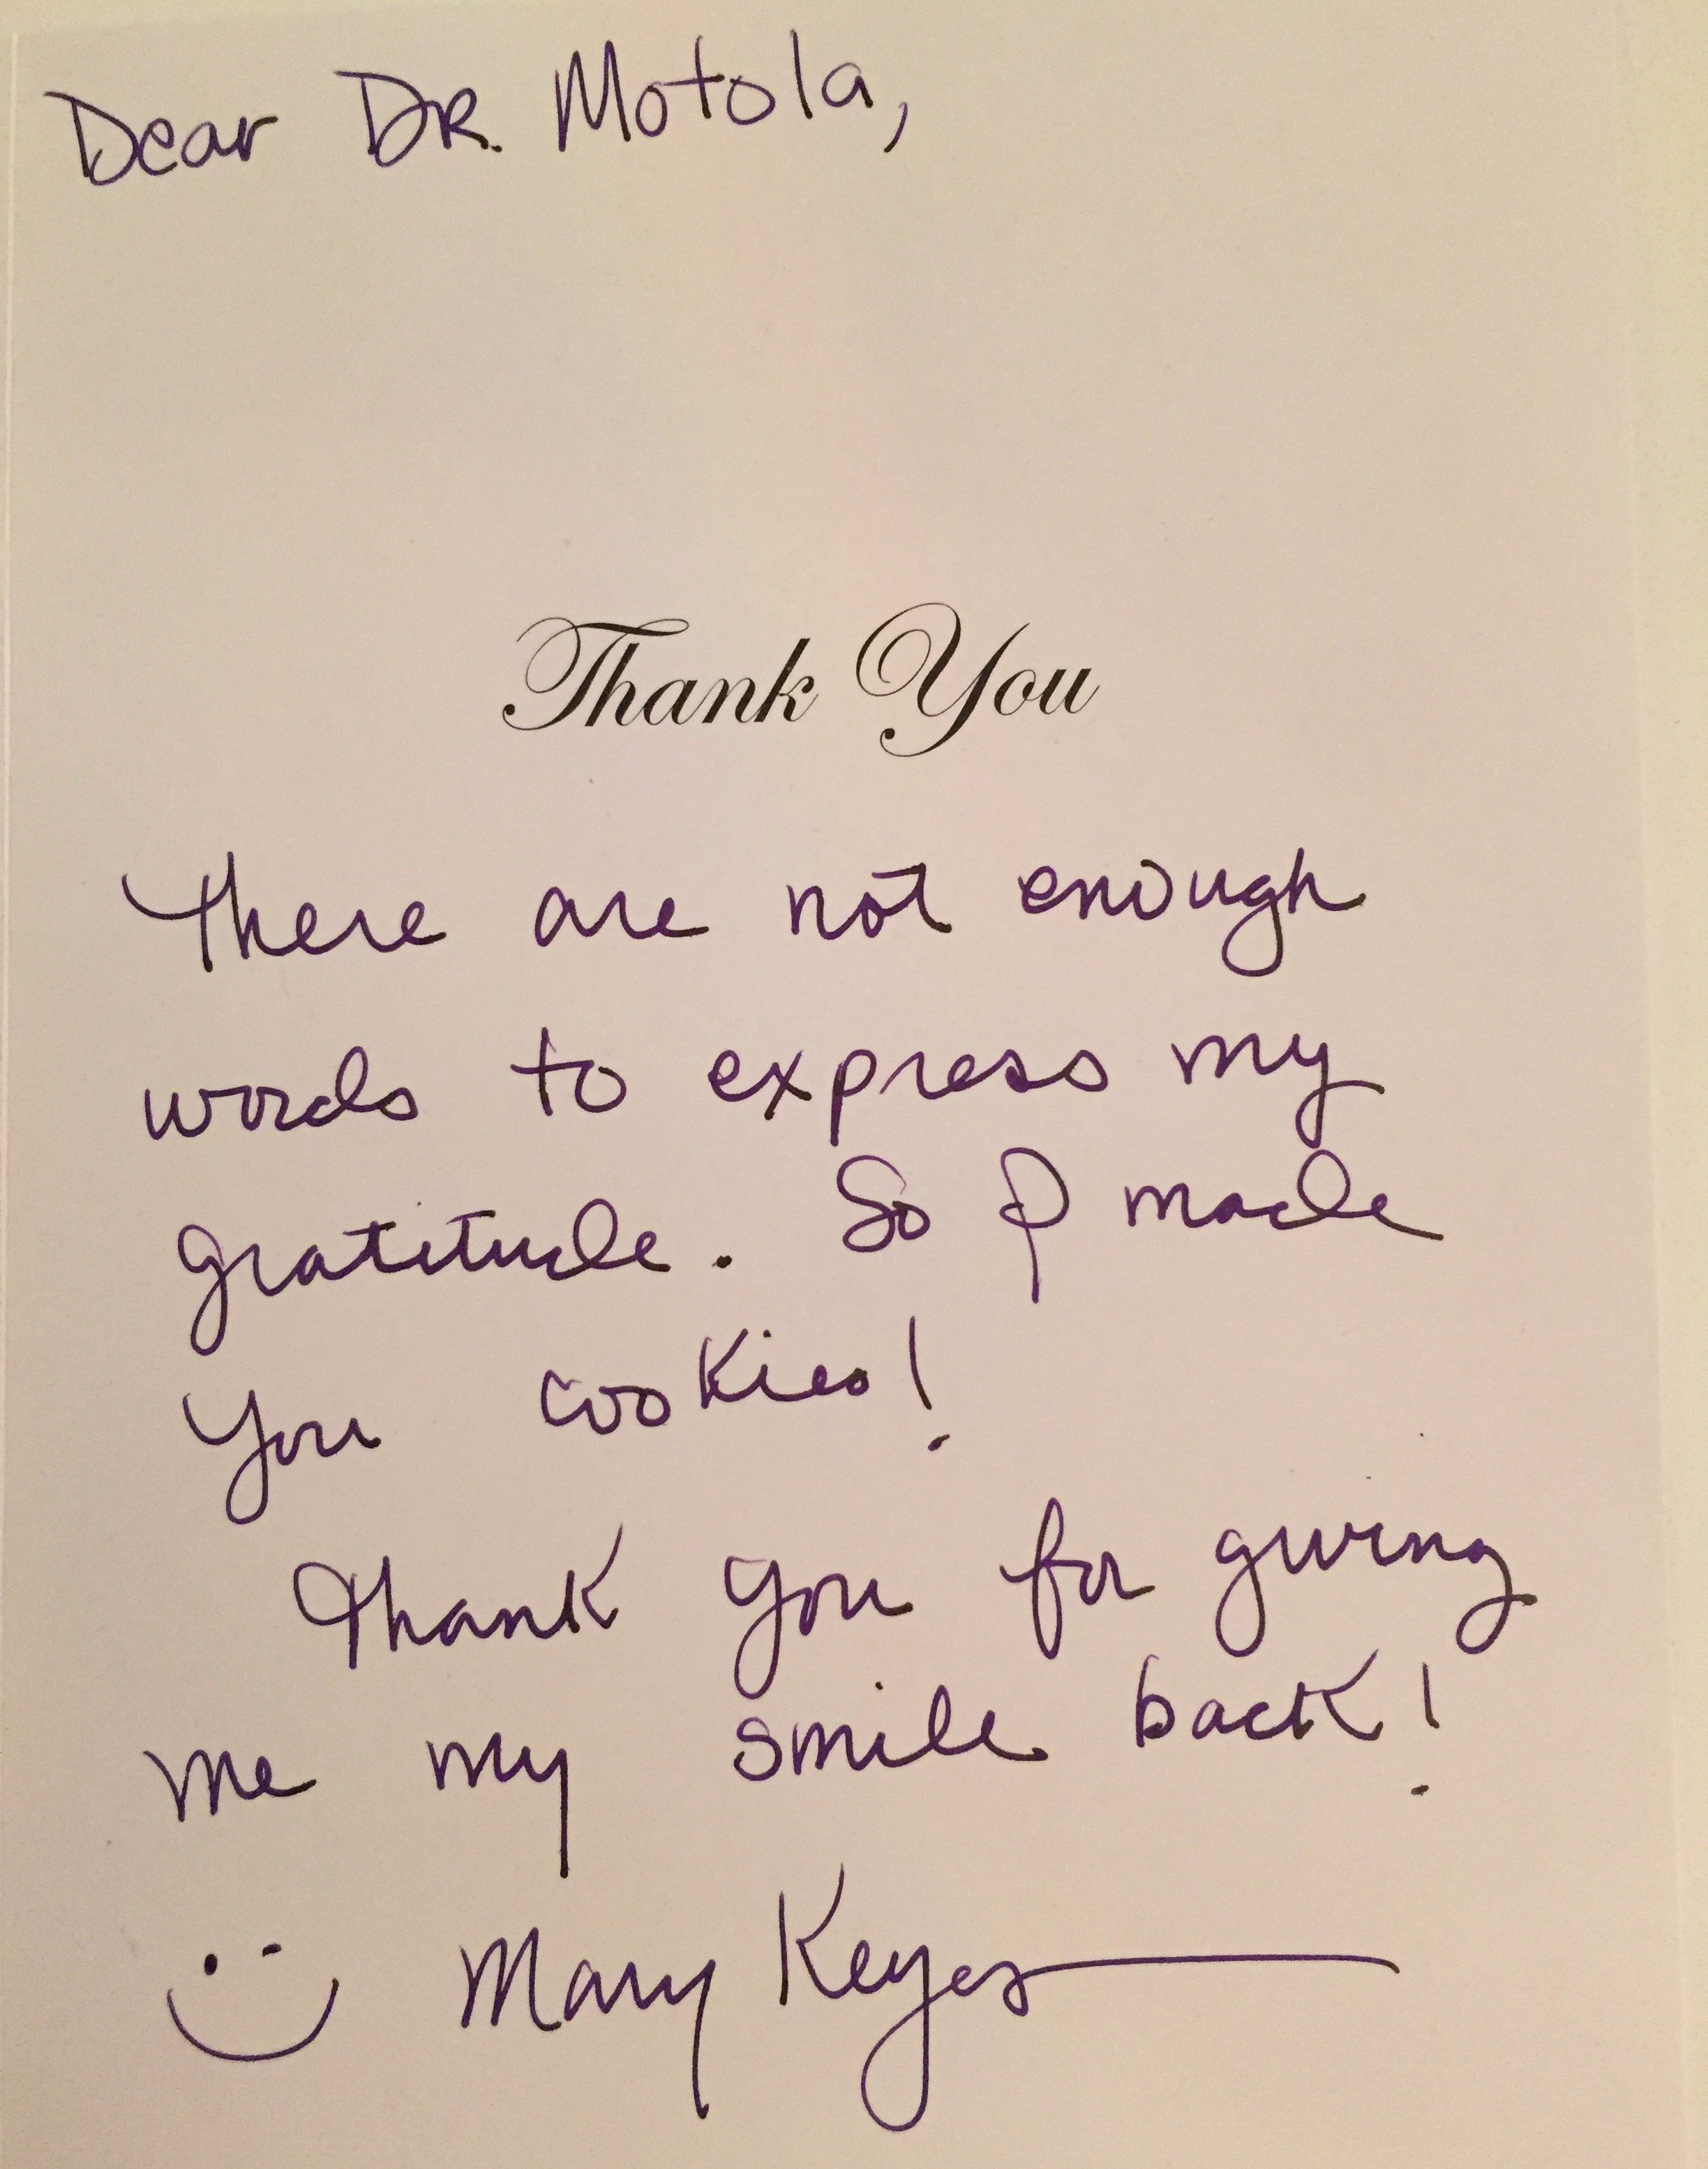 Dear DR. Motola,
Thank You
There are not enough
words to express my
gratitude. So I made
you cookies!
Thank you for giving
me my smile back!
Mary Keyes